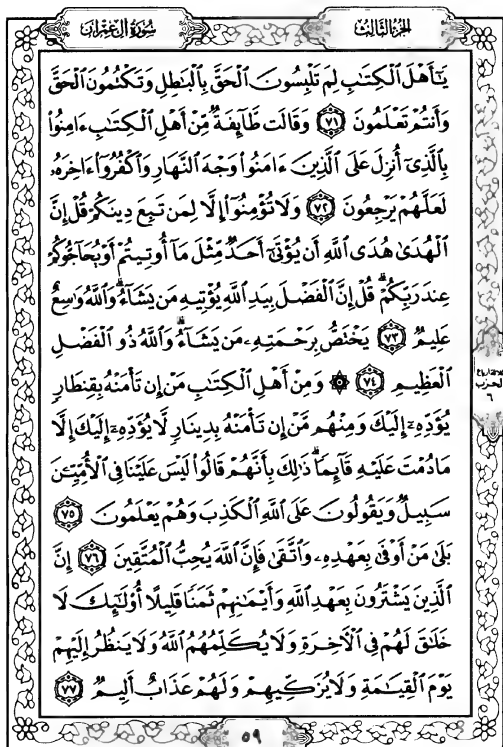 سُورَةُ آلِ عِمْرَانَ
الجُزْءُ الثَّالِثُ
يَٰٓأَهۡلَ ٱلۡكِتَٰبِ لِمَ تَلۡبِسُونَ ٱلۡحَقَّ بِٱلۡبَٰطِلِ وَتَكۡتُمُونَ ٱلۡحَقَّ
وَأَنتُمۡ تَعۡلَمُونَ ٧١ وَقَالَت طَّآئِفَةٞ مِّنۡ أَهۡلِ ٱلۡكِتَٰبِ ءَامِنُواْ
بِٱلَّذِيٓ أُنزِلَ عَلَى ٱلَّذِينَ ءَامَنُواْ وَجۡهَ ٱلنَّهَارِ وَٱكۡفُرُوٓاْ ءَاخِرَهُۥ
لَعَلَّهُمۡ يَرۡجِعُونَ ٧٢ وَلَا تُؤۡمِنُوٓاْ إِلَّا لِمَن تَبِعَ دِينَكُمۡ قُلۡ إِنَّ
ٱلۡهُدَىٰ هُدَى ٱللَّهِ أَن يُؤۡتَىٰٓ أَحَدٞ مِّثۡلَ مَآ أُوتِيتُمۡ أَوۡ يُحَآجُّوكُمۡ
عِندَ رَبِّكُمۡۗ قُلۡ إِنَّ ٱلۡفَضۡلَ بِيَدِ ٱللَّهِ يُؤۡتِيهِ مَن يَشَآءُۗ وَٱللَّهُ وَٰسِعٌ
عَلِيمٞ ٧٣ يَخۡتَصُّ بِرَحۡمَتِهِۦ مَن يَشَآءُۗ وَٱللَّهُ ذُو ٱلۡفَضۡلِ
ٱلۡعَظِيمِ ٧٤ ۞ وَمِنۡ أَهۡلِ ٱلۡكِتَٰبِ مَنۡ إِن تَأۡمَنۡهُ بِقِنطَارٖ
يُؤَدِّهِۦٓ إِلَيۡكَ وَمِنۡهُم مَّنۡ إِن تَأۡمَنۡهُ بِدِينَارٖ لَّا يُؤَدِّهِۦٓ إِلَيۡكَ إِلَّا
مَا دُمۡتَ عَلَيۡهِ قَآئِمٗاۗ ذَٰلِكَ بِأَنَّهُمۡ قَالُواْ لَيۡسَ عَلَيۡنَا فِي ٱلۡأُمِّيِّـۧنَ
سَبِيلٞ وَيَقُولُونَ عَلَى ٱللَّهِ ٱلۡكَذِبَ وَهُمۡ يَعۡلَمُونَ ٧٥
بَلَىٰ مَنۡ أَوۡفَىٰ بِعَهۡدِهِۦ وَٱتَّقَىٰ فَإِنَّ ٱللَّهَ يُحِبُّ ٱلۡمُتَّقِينَ ٧٦ إِنَّ
ٱلَّذِينَ يَشۡتَرُونَ بِعَهۡدِ ٱللَّهِ وَأَيۡمَٰنِهِمۡ ثَمَنٗا قَلِيلًا أُوْلَٰٓئِكَ لَا
خَلَٰقَ لَهُمۡ فِي ٱلۡأٓخِرَةِ وَلَا يُكَلِّمُهُمُ ٱللَّهُ وَلَا يَنظُرُ إِلَيۡهِمۡ
يَوۡمَ ٱلۡقِيَٰمَةِ وَلَا يُزَكِّيهِمۡ وَلَهُمۡ عَذَابٌ أَلِيمٞ ٧٧
الحزب
٦
٥٩